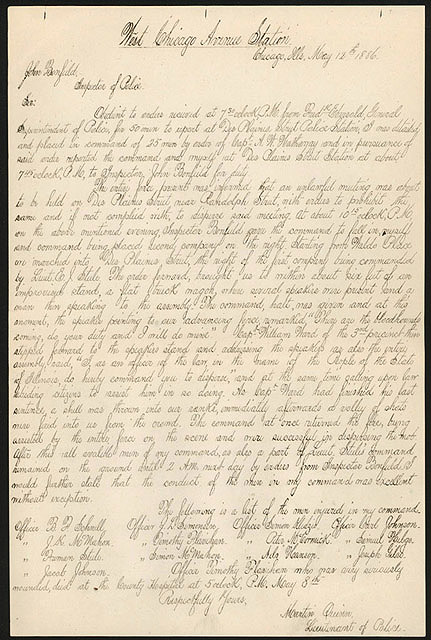 West Chicago Avenue Station.
Chicago, Ills, May 12th 1886.
John Bonfield,
Inspector of Police.
Sir:
Obedient to orders received at 7 30 o'clock P.M. from Fred'k Ebersold, General
Superintendent of Police, for 50 men to report at Des Plaines Street Police Station, I was detailed
and placed in command of 25 men by order of Capt. and in pursuance of
said order reported the command and myself at Des Plaines Street Station at about
o'clock P.M. to Inspector John Bonfield for duty.
The entire force present was informed that an unlawful meeting was about
to be held on Des Plaines Street near Randolph Street, with orders to prohibit the
same and if not complied with, to disperse said meeting. At about 10 o'clock, P.M.
on the above mentioned evening Inspector Bonfield gave the command to fall in, myself
and command being placed second company on the right. Starting from Waldo Place
we marched into Des Plaines Street, the right of the first company being commanded
by Lieut. Steele. The order forward, brought us to within about six feet of an
improvised stand, a flat truck wagon, where several speakers were present and a
man then speaking to the assembly. The command, halt, was given and at this
moment, the speaker pointing to our advancing force remarked, "They are the bloodhounds
coming, do your duty and I will do mine". Capt. William Ward of the 3rd precinct then
stepped forward to the speakers stand and addressing the speakers as also the entire
assembly said, "I as an officer of the law, in the name of the People of the State
of Illinois, do hereby command you to disperse," and at the same time calling upon law
abiding citizens to assist him in so doing. As Capt. Ward had finished his last
sentence, a shell was thrown into our ranks, immediately afterwards a volley of shots
were fired into us from the crowd. The command at once returned the fire, being
assisted by the entire force on the scene and were successful in dispersing the mob.
After this all available men of my command, as also a part of Lieut. Steele's command
remained on the ground until 2 A.M. next day by orders from Inspector Bonfield. I
would further state that the conduct of the men in my command was excellent
without exception.
The following is a list of the men injured in my command.
Officer Officer Officer Simon Officer Carl Johnson.
" " Timothy " Peter McCormick " Samuel
" " Simon McMahon " Nels Hansen " Joseph
" Jacob Johnson. Officer Timothy who was very seriously
wounded, died at the County Hospital at 5 o'clock, P.M. May 8th
Respectfully Yours,
Martin Quinn,
Lieutenant of Police.